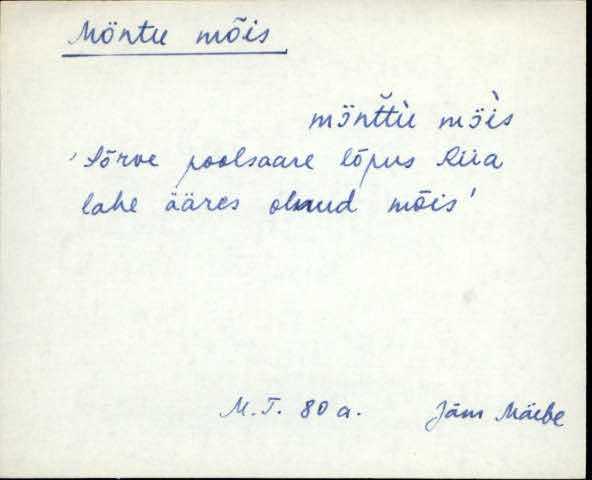 Möntu mõis
mönt̆tù mö̀is
'Sõrve poolsaare lõpus Riia
lahe ääres olnud mõis'
M.T. 80 a. Jäm Mäebe